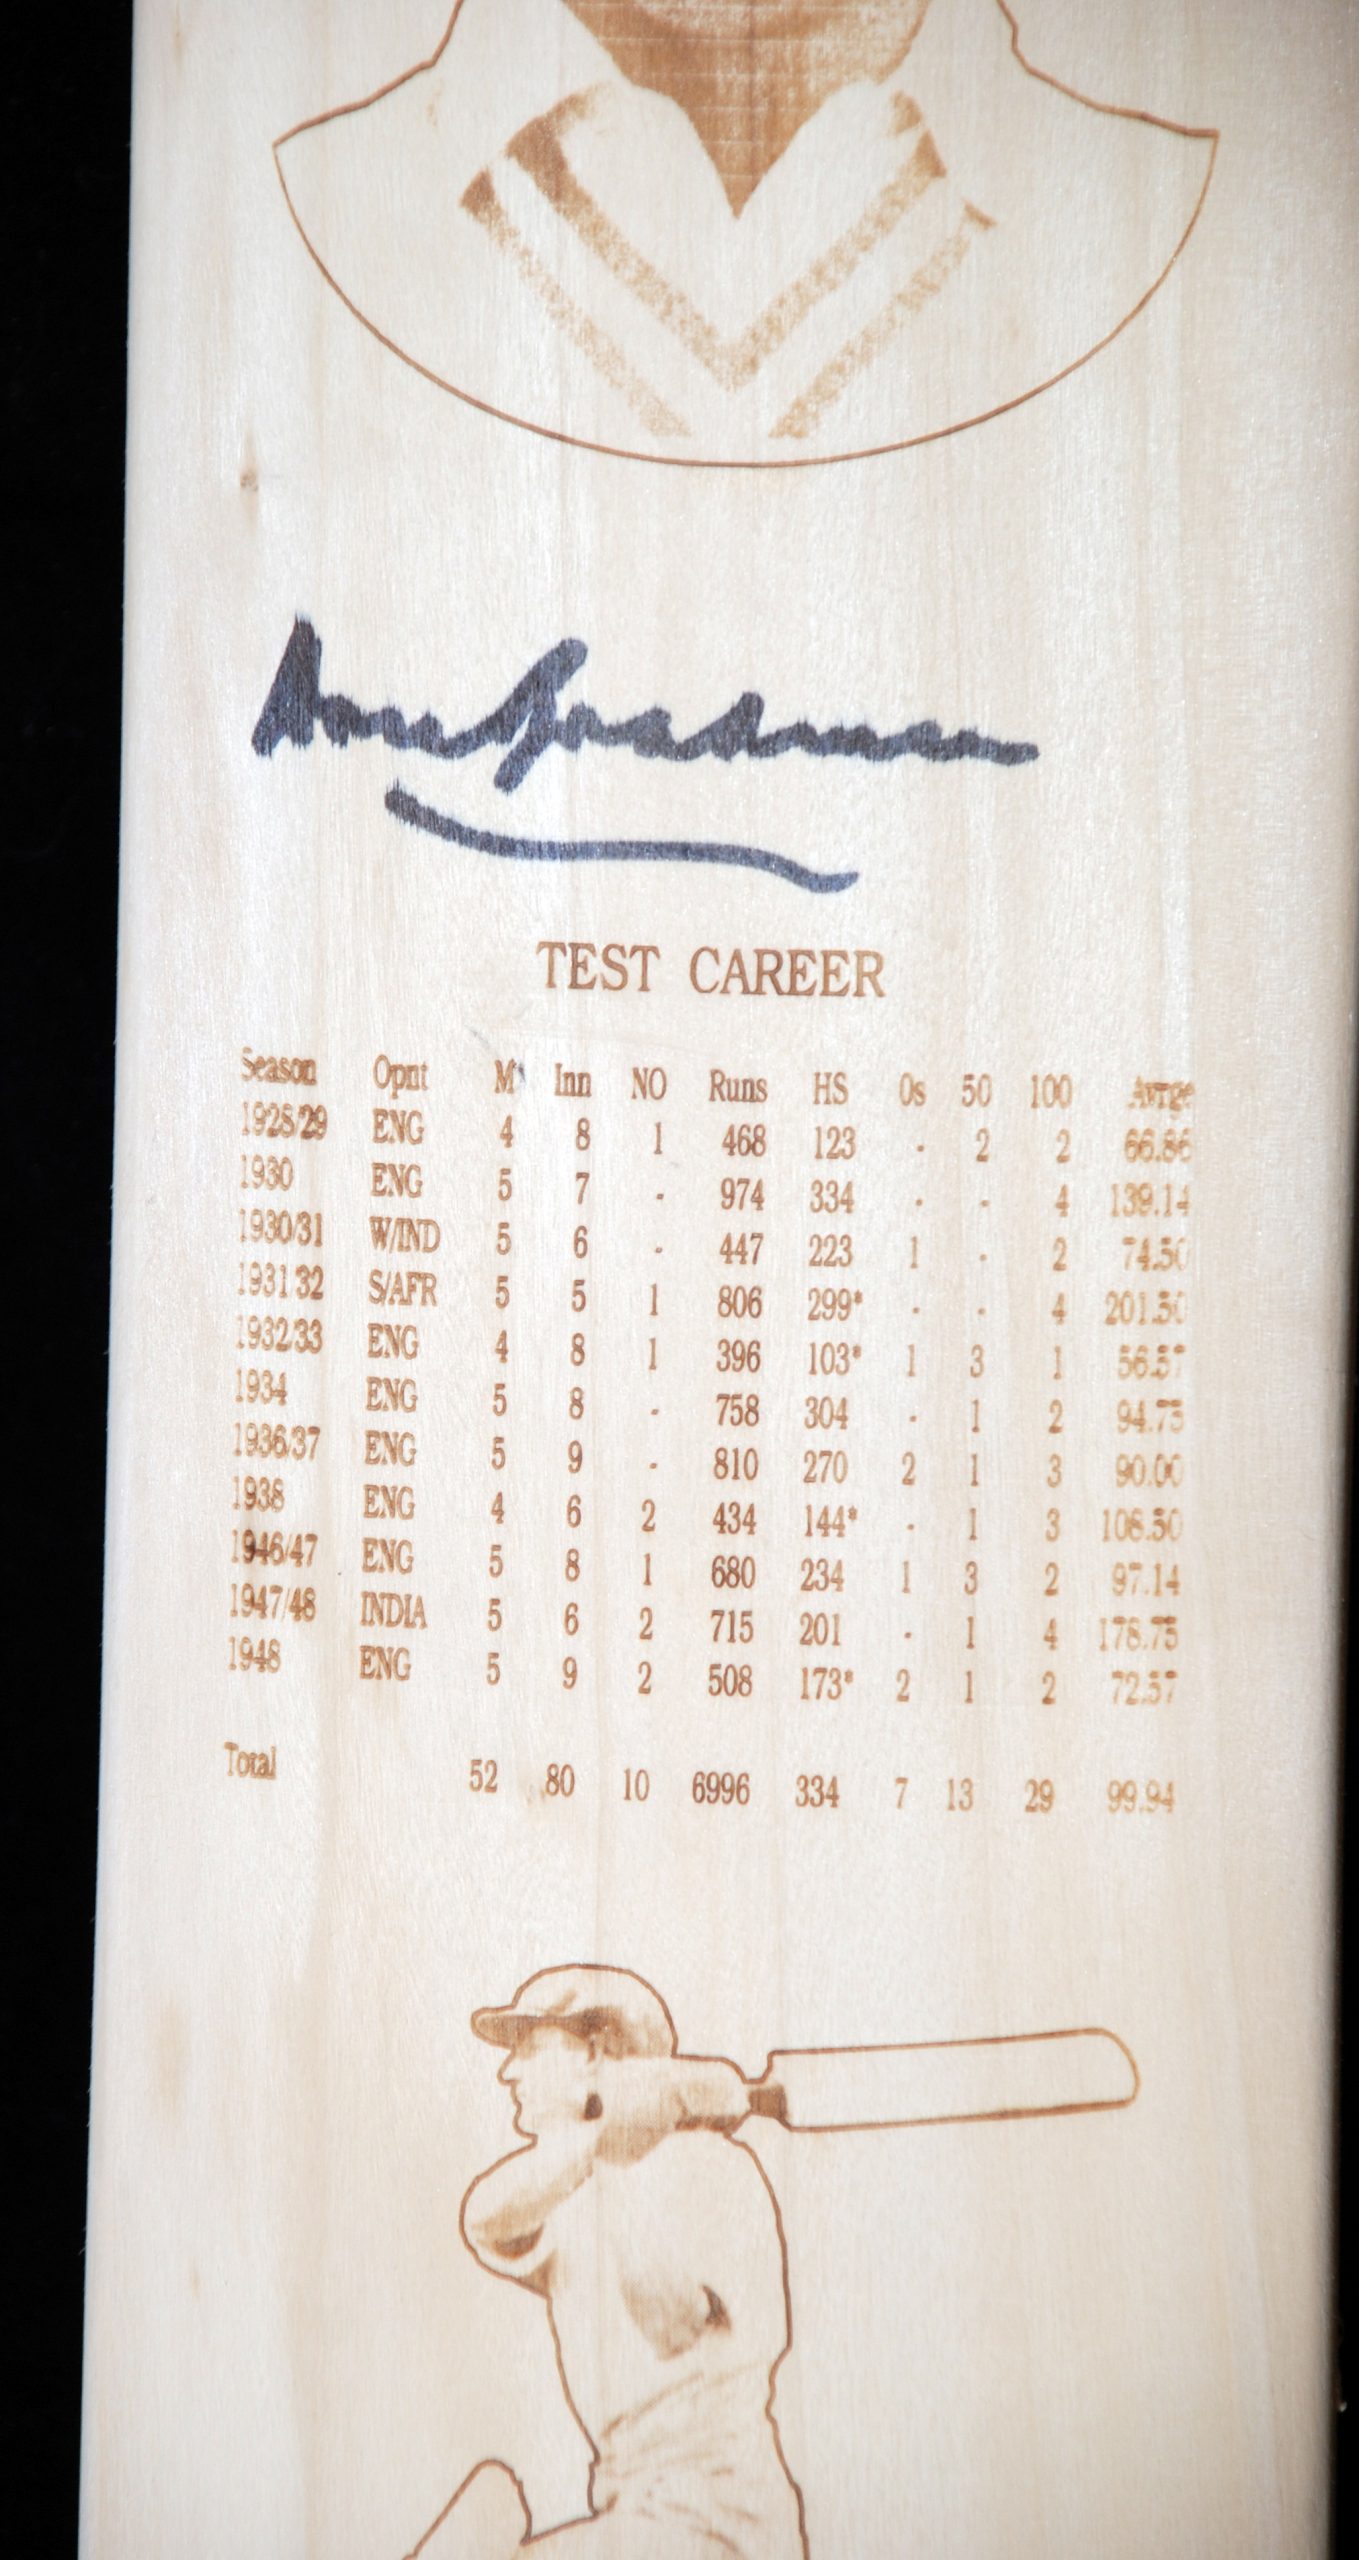 Don Bradman
TEST CAREER
Season Opnt M Inn NO Runs HS 0s 50 100 Avrge
1928/29 ENG 4 8 1 468 123 . 2 2 66.86
1930 ENG 5 7 - 974 334 . - 4 139.14
1930/31 W/IND 5 6 - 447 223 1 . 2 74.50
1931/32 S/AFR 5 5 1 806 299* . . 4 201.50
1932/33 ENG 4 8 1 396 103* 1 3 1 56.57
1934 ENG 5 8 - 758 304 . 1 2 94.75
1936/37 ENG 5 9 - 810 270 2 1 3 90.00
1938 ENG 4 6 2 434 144* . 1 3 108.50
1946/47 ENG 5 8 1 680 234 1 3 2 97.14
1947/48 INDIA 5 6 2 715 201 . 1 4 178.75
1948 ENG 5 9 2 508 173* 2 1 2 72.57
Total 52 80 10 6996 334 7 13 29 99.94